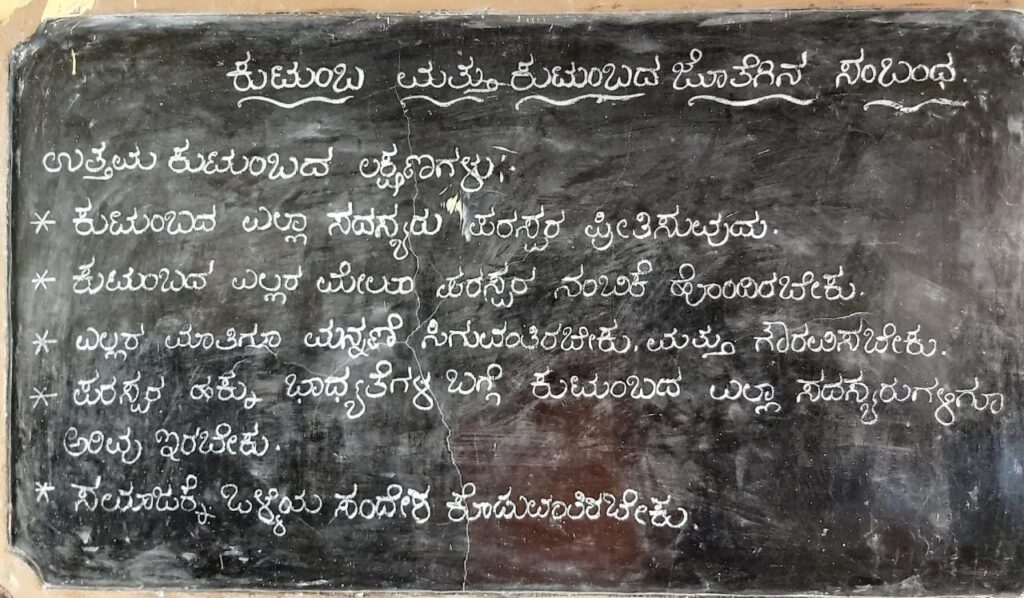 ಕುಟುಂಬ ಮತ್ತು ಕುಟುಂಬದ ಜೊತೆಗಿನ ಸಂಬಂಧ.
ಉತ್ತಮ ಕುಟುಂಬದ ಲಕ್ಷಣಗಳು;-
* ಕುಟುಂಬದ ಎಲ್ಲಾ ಸದಸ್ಯರು ಪರಸ್ಪರ ಪ್ರೀತಿಸುವುದು.
* ಕುಟುಂಬದ ಎಲ್ಲರ ಮೇಲೂ ಪರಸ್ಪರ ನಂಬಿಕೆ ಹೊಂದಿರಬೇಕು.
* ಎಲ್ಲರ ಮಾತಿಗೂ ಮನ್ನಣೆ ಸಿಗುವಂತಿರಬೇಕು, ಮತ್ತು ಗೌರವಿಸಬೇಕು.
* ಪರಸ್ಪರ ಹಕ್ಕು ಭಾಧ್ಯತೆಗಳ ಬಗ್ಗೆ ಕುಟುಂಬದ ಎಲ್ಲಾ ಸದಸ್ಯರುಗಳಿಗೂ
ಅರಿವು ಇರಬೇಕು.
* ಸಮಾಜಕ್ಕೆ ಒಳ್ಳೆಯ ಸಂದೇಶ ಕೊಡುವಂತಿರಬೇಕು.